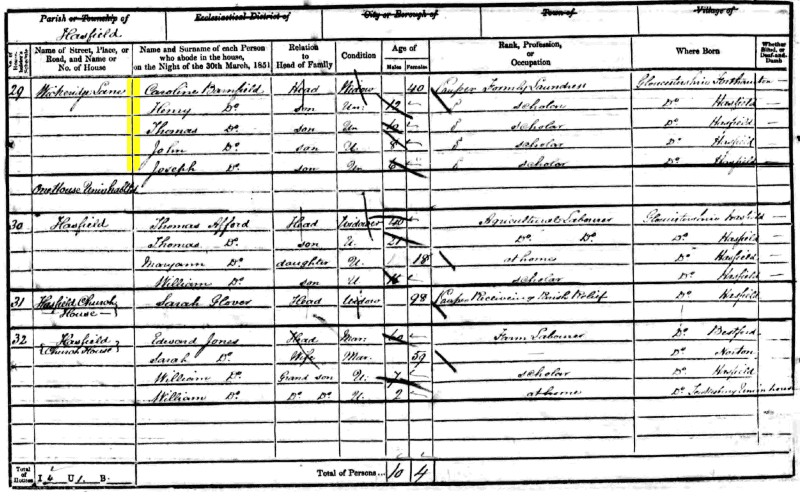 Parish or Township of Ecclesiastical District of City or Borough of Town of Village of
Hasfield
Name of Street, Place, or Road, and Name or No. of House
Name and Surname of each Person who abode in the house, on the Night of the 30th March, 1851
Relation to Head of Family
Condition
Age of
Males Females
Rank, Profession, or Occupation
Where Born
Whether Blind, or Deaf-and-Dumb
29 Caroline Head Widow 40 Pauper Formly Laundress Gloucestershire
Henry Do son Un 12 scholar Do Hasfield
Thomas Do son Un 10 scholar Do Hasfield
John Do son U 8 scholar Do Hasfield
Joseph Do son Un 6 scholar Do Hasfield
One House Uninhabited
30 Hasfield Thomas Afford Head Widower Agricultural Labourer Gloucestershire Hasfield
Thomas Do son U. 21 Do Do Do Hasfield
Maryann Do daughter U. 18 at home Do Hasfield
William Do son U scholar Do Hasfield
31 Hasfield Church House Sarah Glover Head Widow 98 Pauper Receiving Parish Relief Do Hasfield
32 Hasfield Church House Edward Jones Head Mar. 60 Farm Labourer Do
Sarah Do Wife Mar. 59 Do Norton
William Do Grand son U. 7 scholar Do Hasfield
William Do Do Do U. 2 at home Do
Total of Houses I 4 U 1 B Total of Persons... 10 4